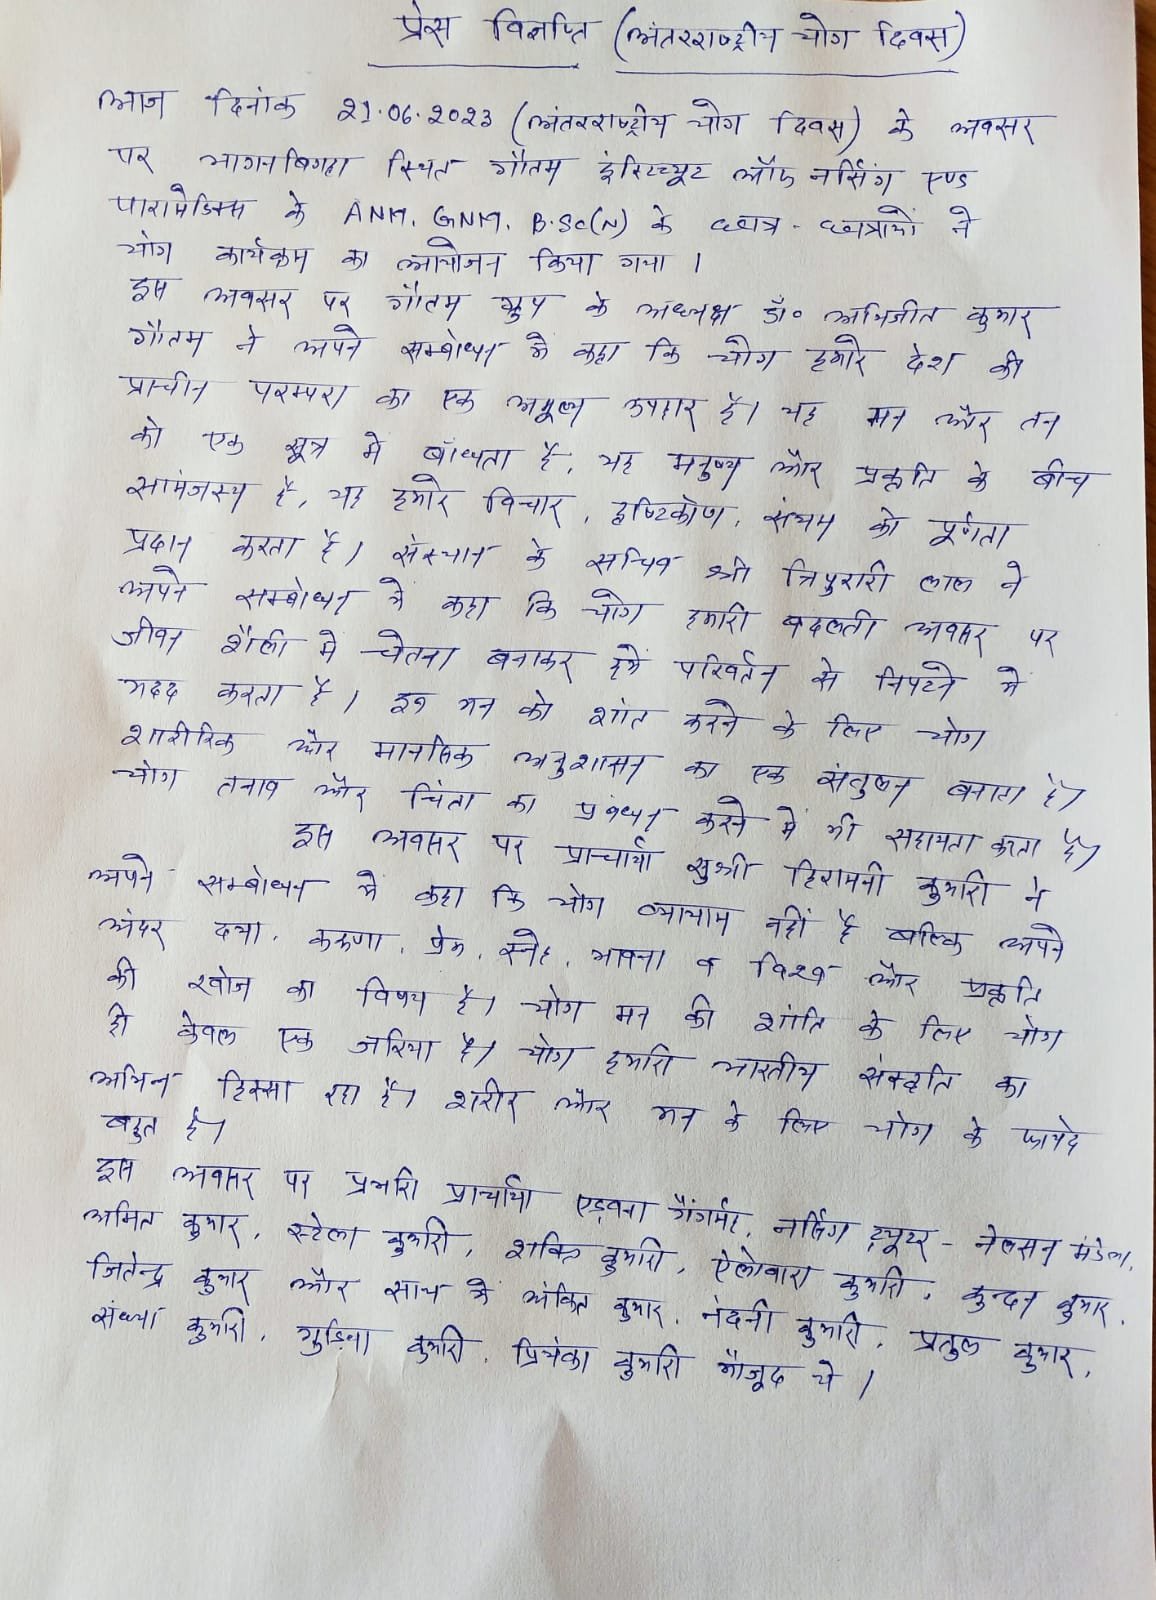 प्रेस विज्ञप्ति (अंतरराष्ट्रीय योग दिवस)
आज दिनांक 21.06.2023 (अंतरराष्ट्रीय योग दिवस) के अवसर
पर भागनबिगहा स्थित गौतम इंस्टिच्यूट ऑफ नर्सिंग एण्ड
पारामेडिक्स के ANM, GNM, B.Sc(N) के छात्र - छात्राओं ने
योग कार्यक्रम का आयोजन किया गया ।
इस अवसर पर गौतम ग्रुप के अध्यक्ष डॉ० अभिजीत कुमार
गौतम ने अपने सम्बोधन में कहा कि योग हमारे देश की
प्राचीन परम्परा का एक अमूल्य उपहार है। यह मन और तन
को एक सूत्र में बाँधता है, यह मनुष्य और प्रकृति के बीच
सामंजस्य है, यह हमारे विचार, दृष्टिकोण, संयम को पूर्णता
प्रदान करता है। संस्थान के सचिव श्री त्रिपुरारी लाल ने
अपने सम्बोधन में कहा कि योग हमारी बदलती अवसर पर
जीवन शैली में चेतना बनाकर हमें परिवर्तन से निपटने में
मदद करता है। इन मन को शांत करने के लिए योग
शारीरिक और मानसिक अनुशासन का एक संतुलन बनाता है।
योग तनाव और चिंता का प्रबंधन करने में भी सहायता करता है।
इस अवसर पर प्राचार्या सुश्री हिरामनी कुमारी ने
अपने सम्बोधन में कहा कि योग व्यायाम नहीं है बल्कि अपने
अंदर दया, करुणा, प्रेम, स्नेह, भावना व विश्व और प्रकृति
की खोज का विषय है। योग मन की शांति के लिए योग
ही केवल एक जरिया है। योग हमारी भारतीय संस्कृति का
अभिन्न हिस्सा रहा है। शरीर और मन के लिए योग के फायदे
बहुत है।
इस अवसर पर प्रभारी प्राचार्या एड्वना गैंगमेंट, नर्सिंग ट्यूटर - नेलसन मंडेला,
अमित कुमार, स्टेला कुमारी, शक्ति कुमारी, ऐलोवारा कुमारी, कुन्दन कुमार,
जितेन्द्र कुमार और साथ में अंकित कुमार, नंदनी कुमारी, प्रतुल कुमार,
संध्या कुमारी, गुड़िया कुमारी, प्रियंका कुमारी मौजूद थे ।